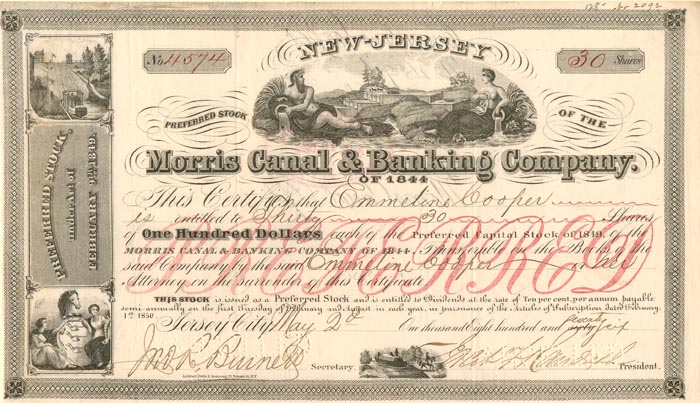 No. 4574
30 Shares
NEW-JERSEY
PREFERRED STOCK OF THE
Morris Canal & Banking Company.
OF 1844
PREFERRED STOCK,
under Act of
FEBRUARY 9th 1849.
This Certifies that Emmeline Cooper
is entitled to Thirty 30 Shares
of One Hundred Dollars each of the Preferred Capital Stock of 1849, of the
MORRIS CANAL & BANKING COMPANY OF 1844. Transferable on the Books of the
said Company by the said Emmeline Cooper or her
Attorney on the surrender of this Certificate
PREFERRED
THIS STOCK is issued as a Preferred Stock and is entitled to Dividends at the rate of Ten per cent. per annum payable
semi-annually on the first Tuesday of February and August in each year, in pursuance of the Articles of Subscription dated February
1st 1850.
Jersey City May 2d One thousand Eight hundred and seventy six
Secretary. President.